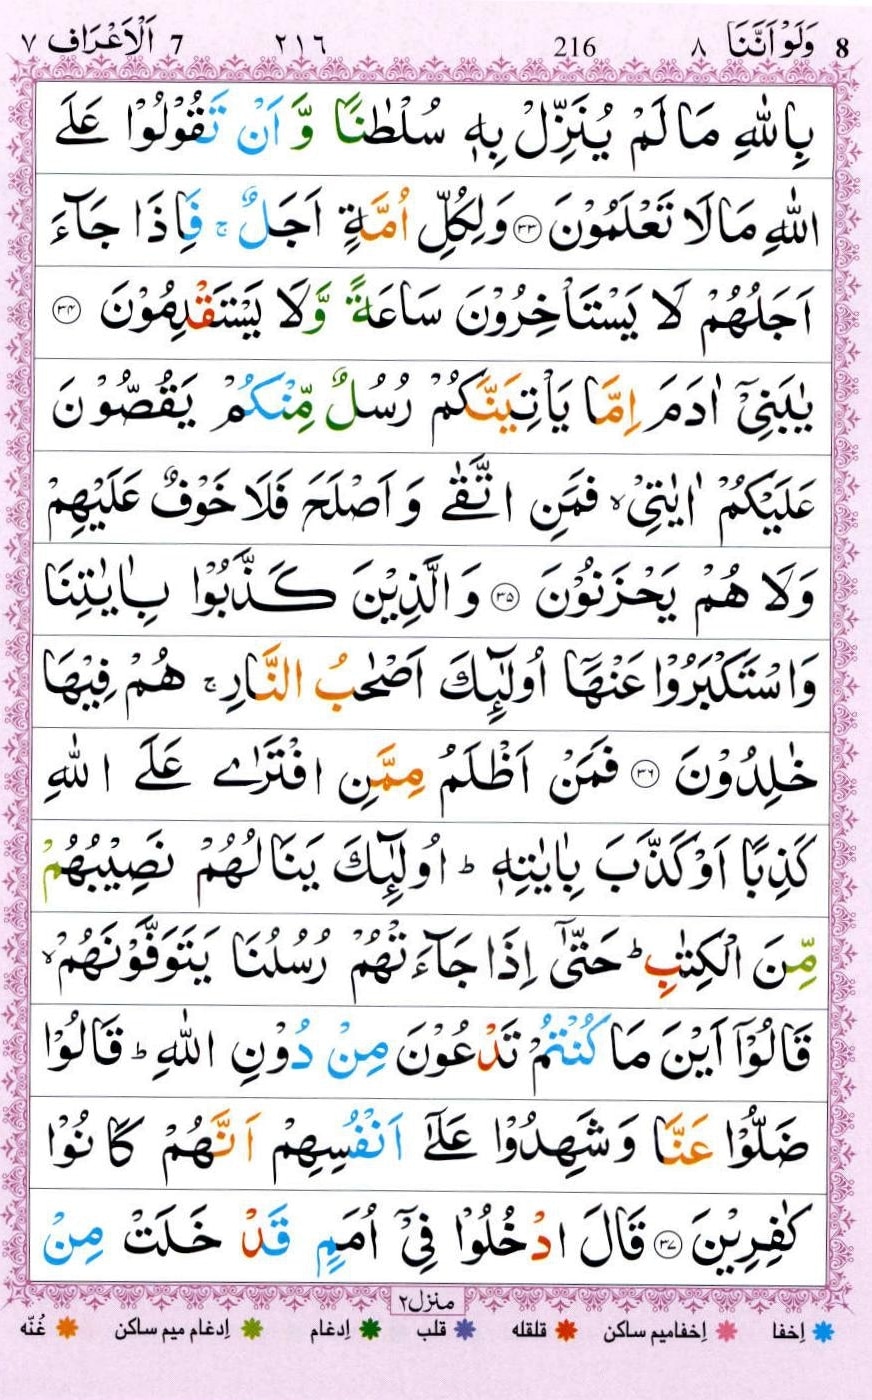 8 وَلَوْ اَنَّنَا ٨ 216 ٢١٦ 7 اَلْاَعْرَاف ٧
بِاللّٰهِ مَا لَمْ يُنَزِّلْ بِهٖ سُلْطٰنًا وَّ اَنْ تَقُوْلُوْا عَلَى
اللّٰهِ مَا لَا تَعْلَمُوْنَ ۝٣٣ وَلِكُلِّ اُمَّةٍ اَجَلٌ ۚ فَاِذَا جَآءَ
اَجَلُهُمْ لَا يَسْتَاْخِرُوْنَ سَاعَةً وَّلَا يَسْتَقْدِمُوْنَ ۝٣٤
يٰبَنِيْٓ اٰدَمَ اِمَّا يَاْتِيَنَّكُمْ رُسُلٌ مِّنْكُمْ يَقُصُّوْنَ
عَلَيْكُمْ اٰيٰتِيْ ۙ فَمَنِ اتَّقٰى وَ اَصْلَحَ فَلَا خَوْفٌ عَلَيْهِمْ
وَلَا هُمْ يَحْزَنُوْنَ ۝٣٥ وَ الَّذِيْنَ كَذَّبُوْا بِاٰيٰتِنَا
وَاسْتَكْبَرُوْا عَنْهَآ اُولٰٓئِكَ اَصْحٰبُ النَّارِ ۚ هُمْ فِيْهَا
خٰلِدُوْنَ ۝٣٦ فَمَنْ اَظْلَمُ مِمَّنِ افْتَرٰى عَلَى اللّٰهِ
كَذِبًا اَوْ كَذَّبَ بِاٰيٰتِهٖ ؕ اُولٰٓئِكَ يَنَالُهُمْ نَصِيْبُهُمْ
مِّنَ الْكِتٰبِ ؕ حَتّٰٓى اِذَا جَآءَتْهُمْ رُسُلُنَا يَتَوَفَّوْنَهُمْ ۙ
قَالُوْٓا اَيْنَ مَا كُنْتُمْ تَدْعُوْنَ مِنْ دُوْنِ اللّٰهِ ؕ قَالُوْا
ضَلُّوْا عَنَّا وَ شَهِدُوْا عَلٰٓى اَنْفُسِهِمْ اَنَّهُمْ كَانُوْا
كٰفِرِيْنَ ۝٣٧ قَالَ ادْخُلُوْا فِيْٓ اُمَمٍ قَدْ خَلَتْ مِنْ
منزل٢
اِخفا اِخفامیم ساکن قلقله قلب اِدغام اِدغام میم ساکن غُنّه